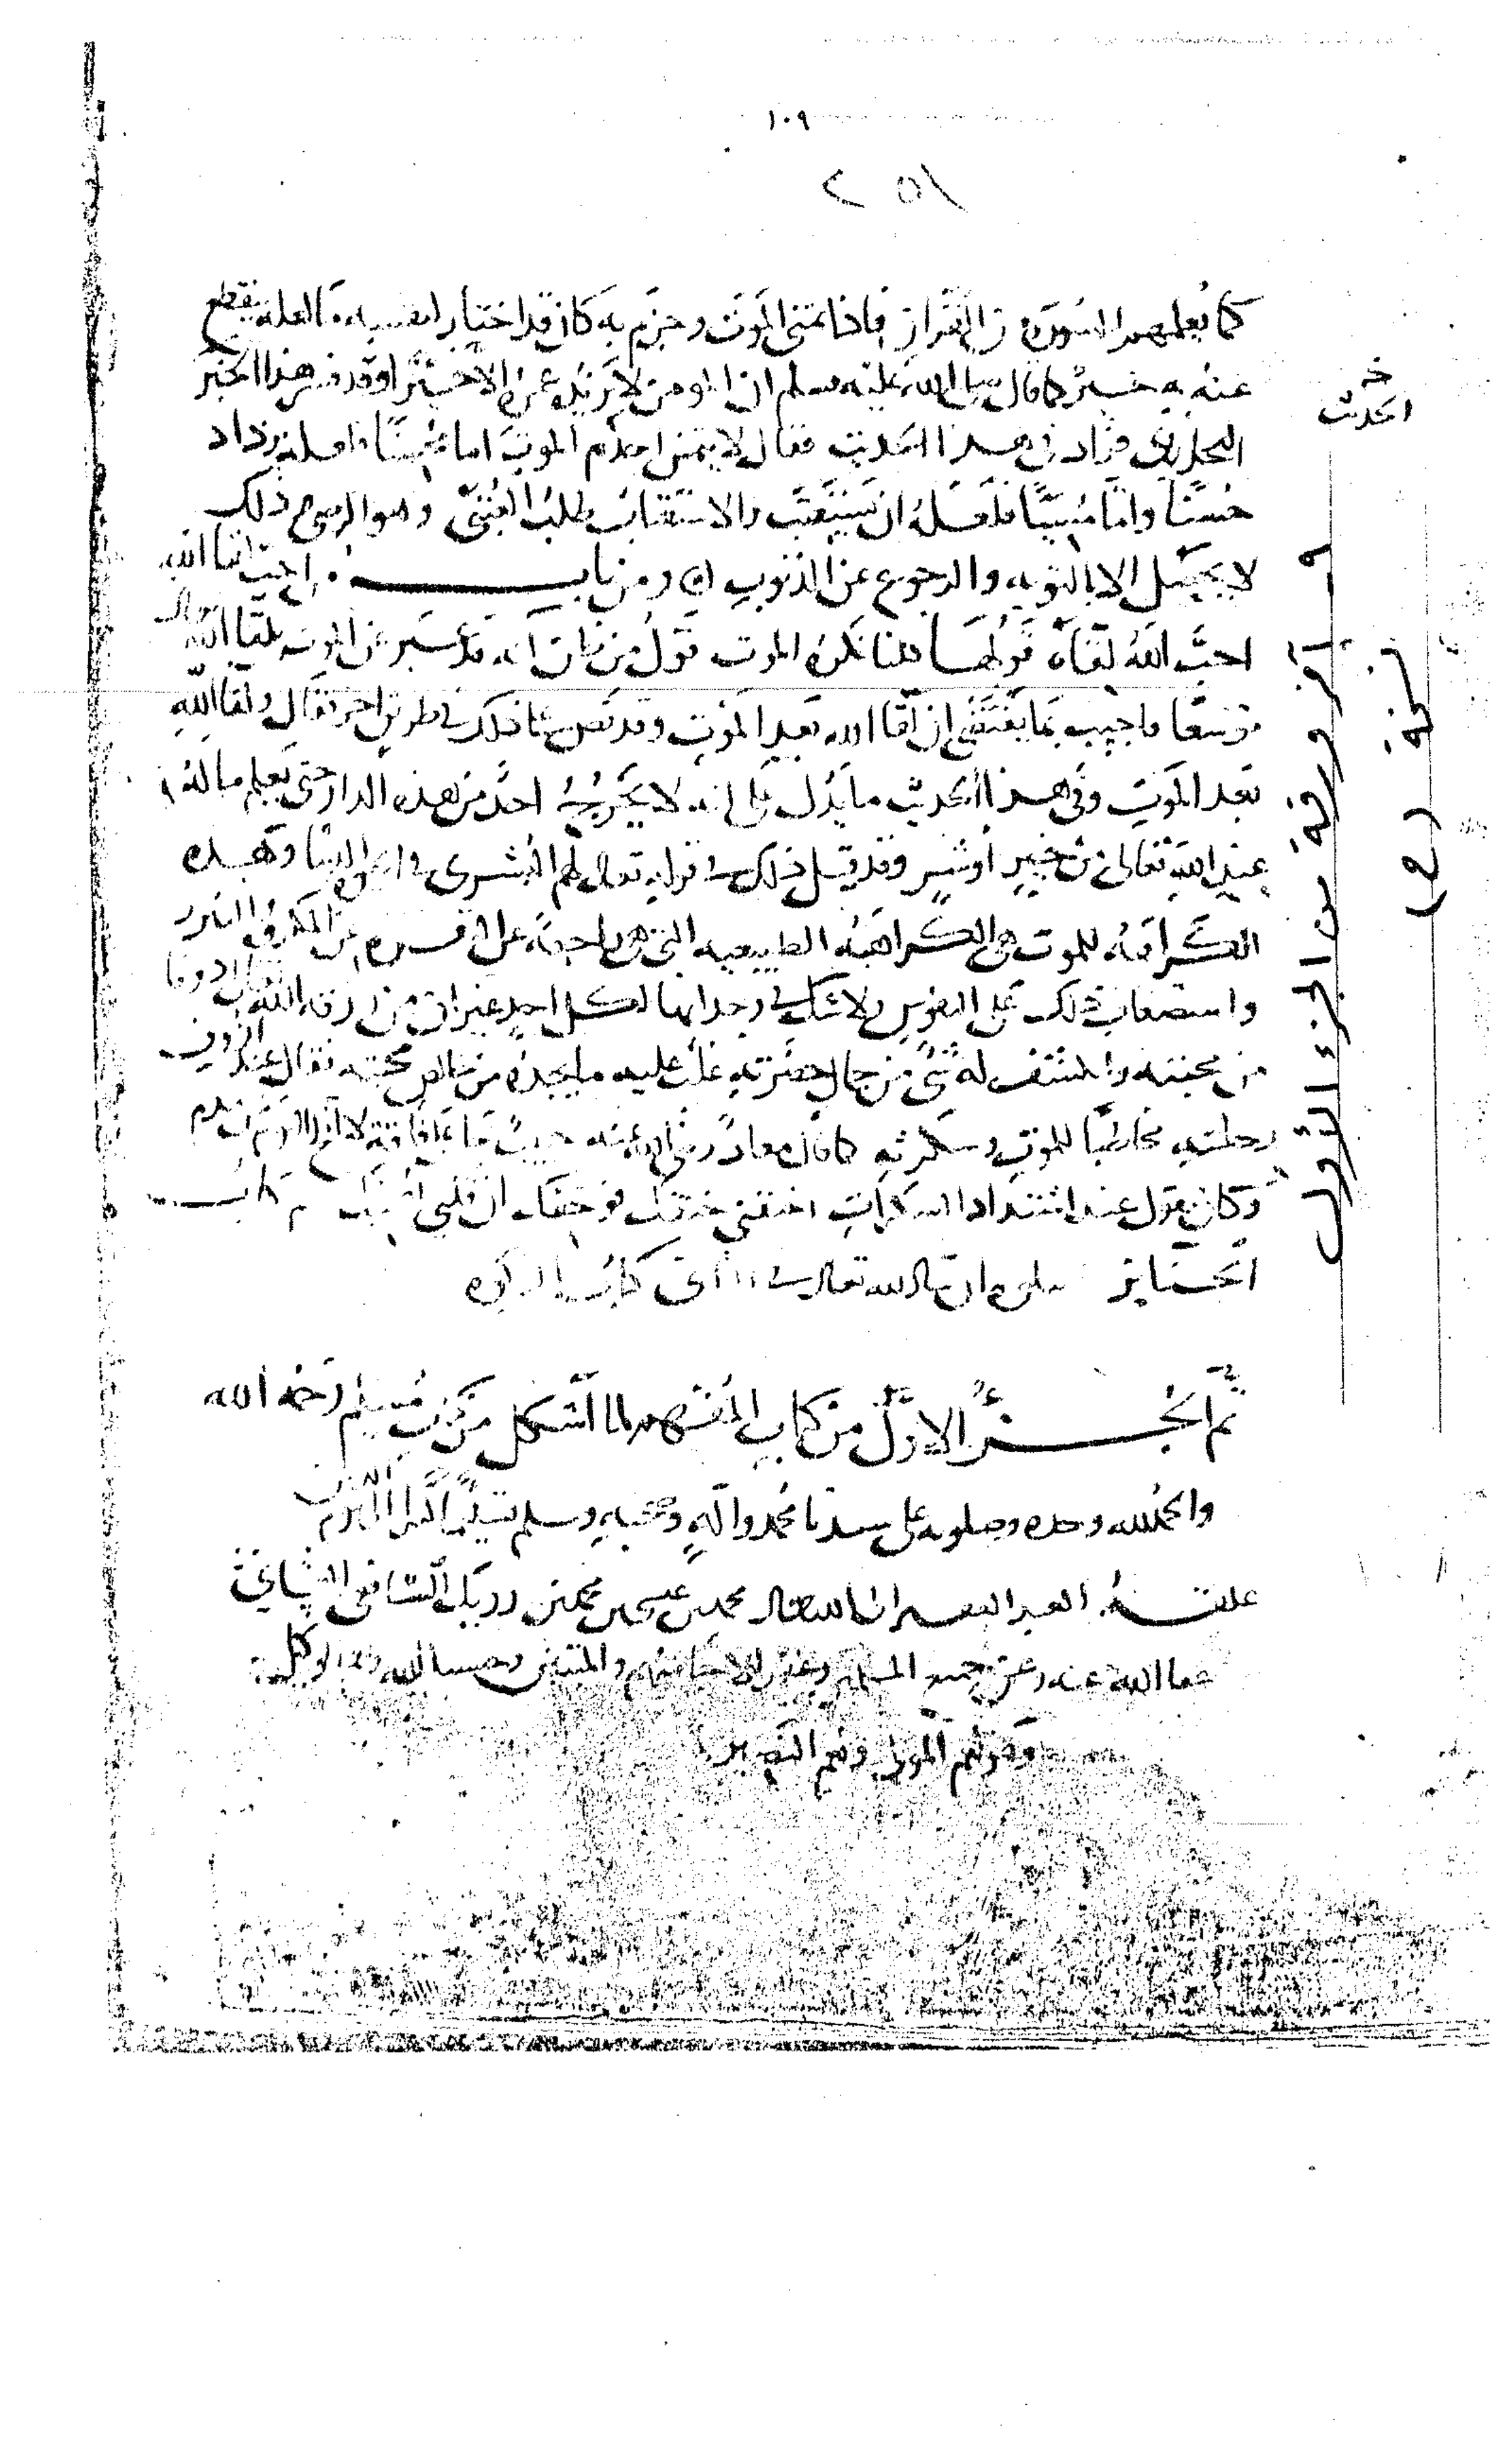 ١٠٩
٢٥١
كما يعلمهم السورة من القرآن فاذا تمنى الموت وجزم به كان قد اختار لنفسه ما لعله يقطع
عنه به خير كما قال صلى الله عليه وسلم ان المومن لا يزيده عمره الا خيرا وقد فسر هذا الخبر
البخاري فزاد في هذا الحديث فقال لا يتمنى احدكم الموت اما محسنا فلعله يزداد
حسنا واما مسيئا فلعله ان يستعتب والاستعتاب طلب العتبى وهو الرضى وذلك
لا يحصل الا بالتوبه والرجوع عن الذنوب ومن باب من احب لقا الله
احب الله لقاه قولها فكلنا نكره الموت قول من ظن انه قد عبر عن الموت بلقا الله
توسعا فاجيب بما يقتضي ان لقا الله بعد الموت وقد نص على ذلك في طريق اخر فقال ولقا الله
بعد الموت وفي هذا الحديث ما يدل على انه لا يخرج احد من هذه الدار حتى يعلم ما له
عند الله تعالى من خير أو شر وقد قيل ذلك في قوله تعالى لهم البشرى في الحيوه الدنيا وهذه
الكراهه للموت هي الكراهيه الطبيعيه التي هي راجعة عن النفره عن المكروه والضرر
واستصعاب ذلك على النفوس ولا شك في وجدانها لكل احد غير ان من رزقه الله تعالى ذوقا
من محبته وانكشف له شي من جمال حضرته غلب عليه ما يجده من خالص محبته فقال عند ازوف
رحلته مخاطبا للموت وسكرته كما قال معاذ رضي الله عنه حبيب جا على فاقة لا افلح اليوم من ندم
وكان يقول عند اشتداد السكرات اخنقني خنقك فوحقك ان قلبي ليحبك تم كتاب
الجنايز يتلوه ان شا الله تعالى في الثاني كتاب الزكوه
تم الجزء الاول من كتاب المفهم لما اشكل من كتاب مسلم رحمه الله
والحمد لله وحده وصلوته على سيدنا محمد واله وصحبه وسلم تسليما كثيرا الى يوم الدين
علقه العبد الفقير الى الله تعالى محمد بن عيسى بن محمد بن الشافعي
عفا الله عنه وعن جميع المسلمين وغفر للاحيا منهم والميتين وحسبنا الله ونعم الوكيل
ونعم المولى ونعم النصير
خـ
الحديث
آخر ورقة من الجزء الأول
نسخة (ع)